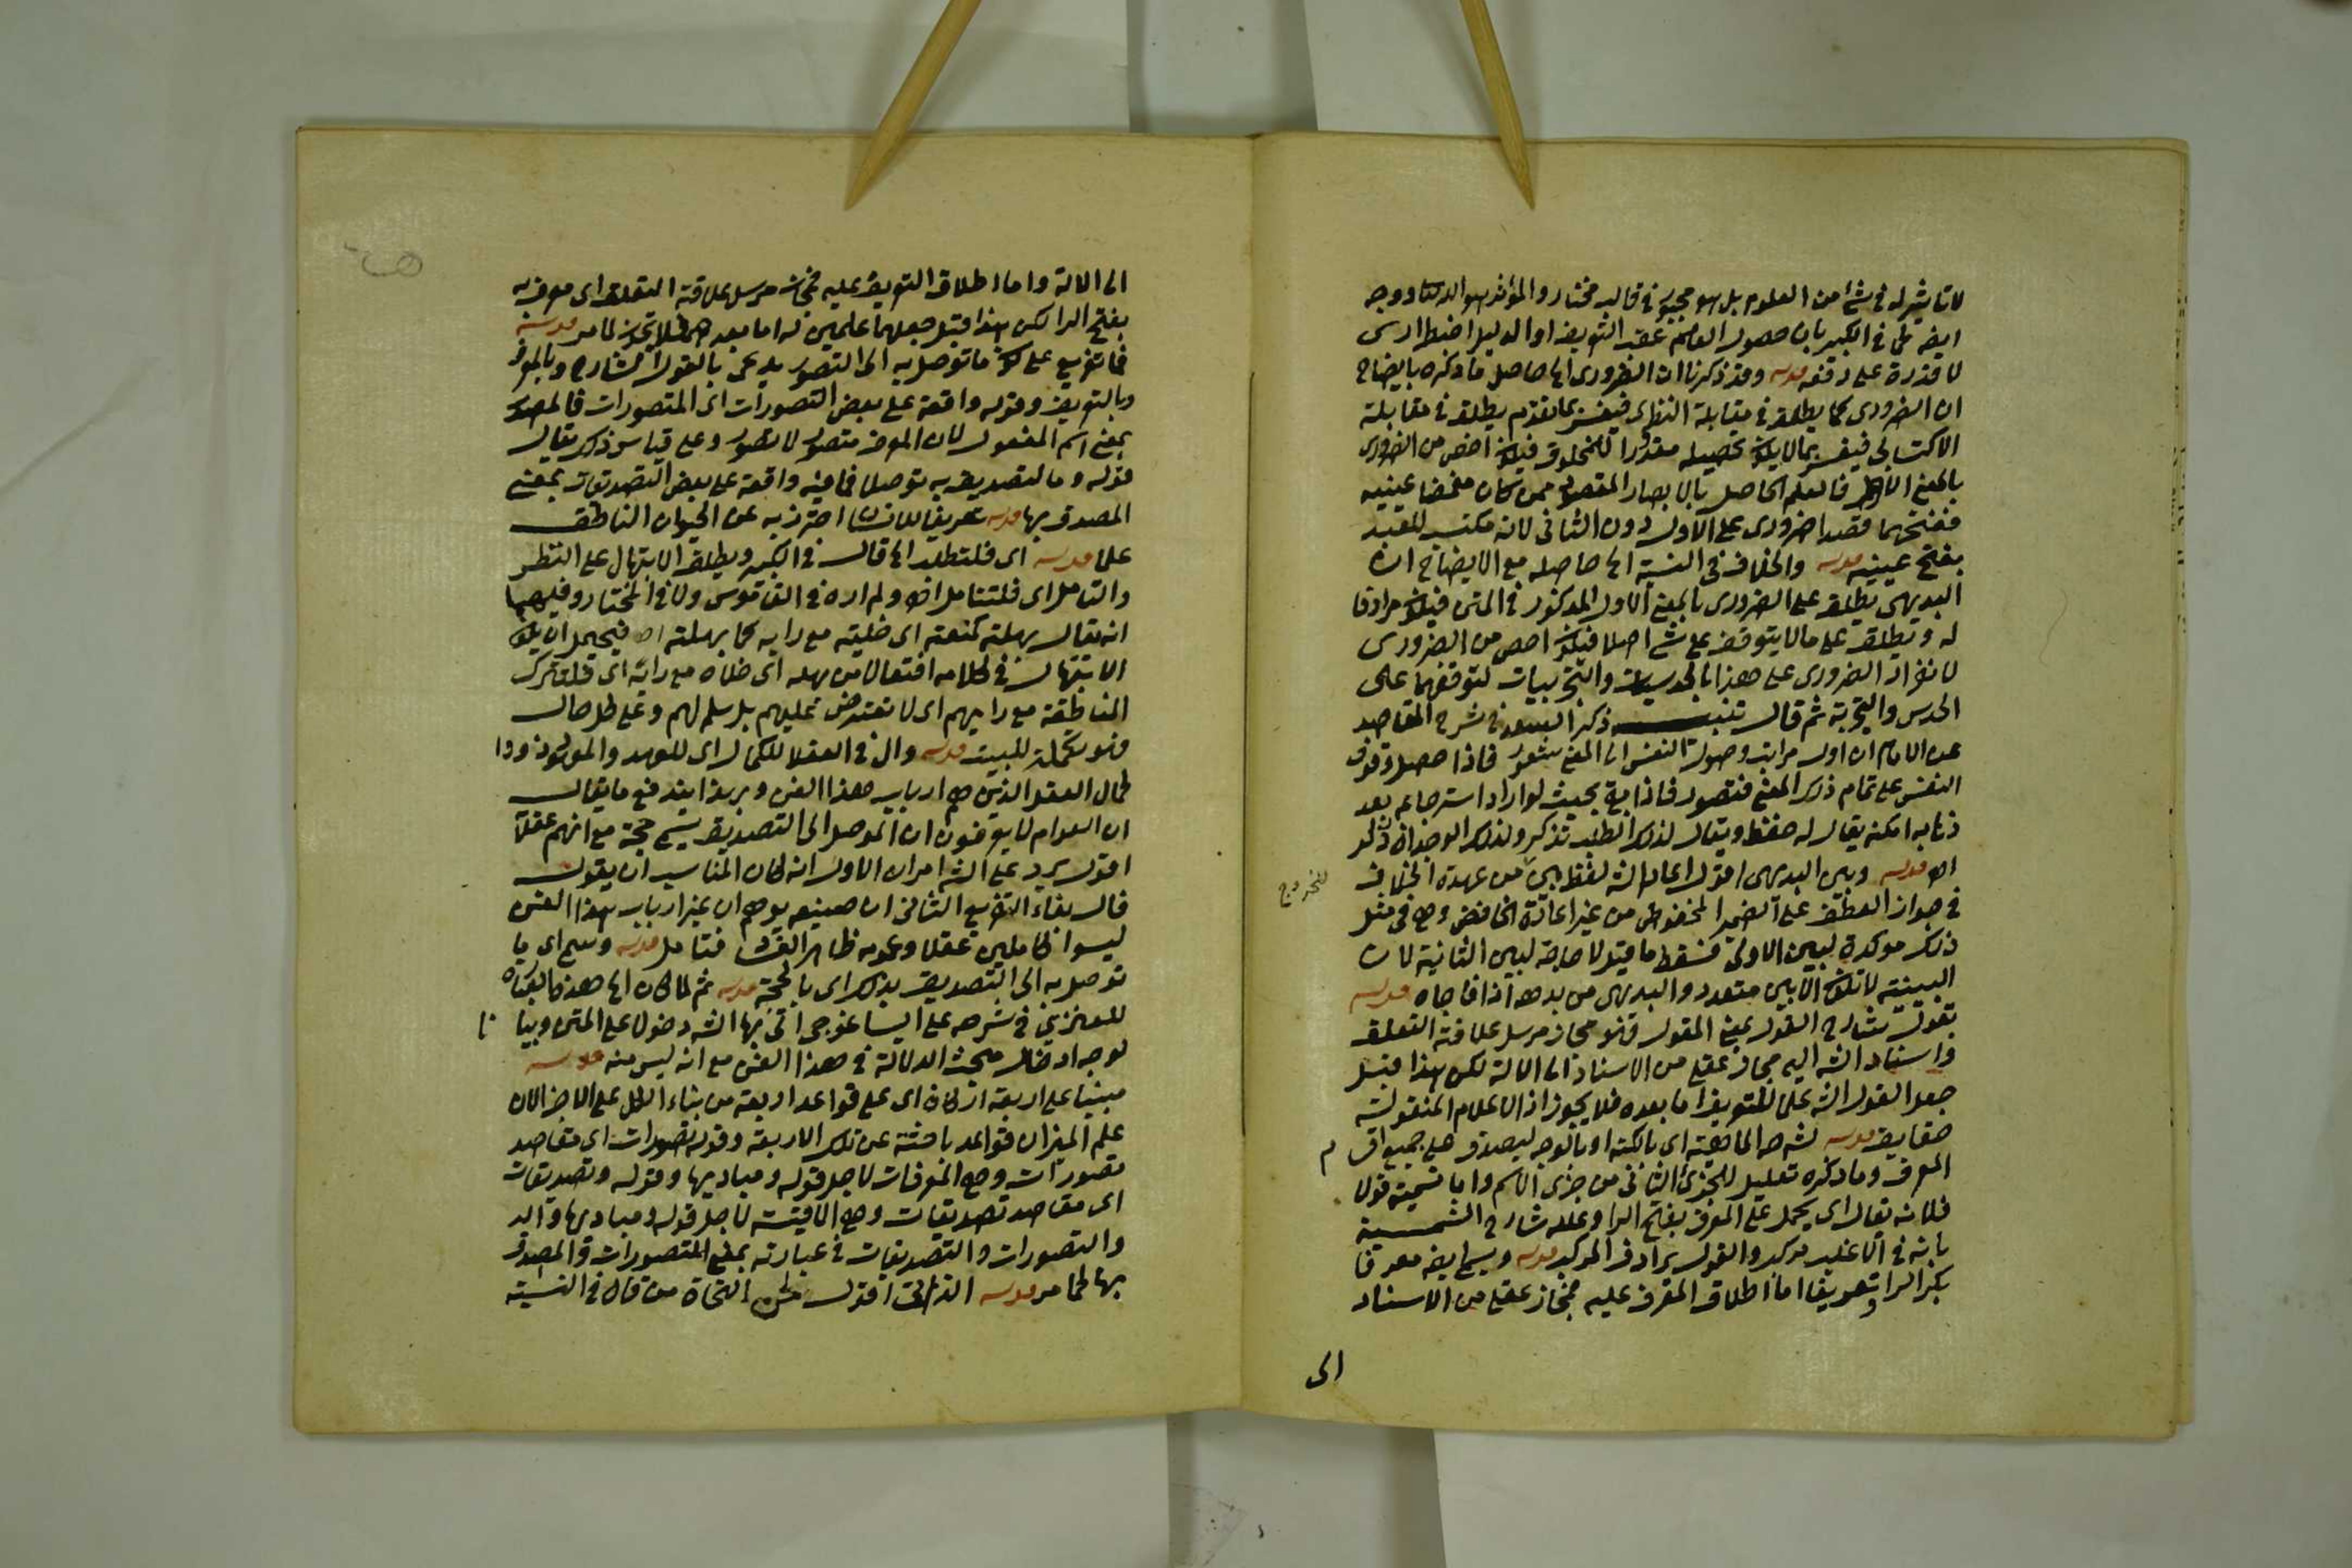 لا تاثير له في شئ من العلوم بل هو مجبور في قالب مختار والمؤثر هو الله تعا ووجه
ايضه في الكبير بان حصول العلم عقب التعريف او الدليل اضطراري
لا قدرة على دفعه قوله وقد ذكرنا ان الضروري الخ حاصل ما ذكره بايضاح
ان الضروري كما يطلق في مقابلة النظري فيفسر بما تقدم يطلق في مقابلة
الاكتسابي فيفسر بما لا يكون تحصيله مقدورا للمخلوق فيكون اخص من الضروري
بالمعنى الاول فالعلم الحاصل بالابصار المقصود ممن كان مغمضا عينيه
ففتحهما قصدا ضروري على الاول دون الثاني لانه مكتسب للعبد
بفتح عينيه قوله والخلاف في النسبة الخ حاصله مع الايضاح ان
البديهي يطلق على الضروري بالمعنى الاول المذكور في المتن فيكون مرادفا
له ويطلق على ما لا يتوقف على شئ اصلا فيكون اخص من الضروري
لانفراد الضروري على هذا بالحدسيات والتجربيات لتوقفهما على
الحدس والتجربة ثم قال تنبيه ذكر السعد في شرح المقاصد
عن الامام ان اول مراتب وصول النفس الى المعنى شعور فاذا حصل وقوف
النفس على تمام ذلك المعنى فتصور فاذا بقي بحيث لو اراد استرجاعه بعد
ذهابه امكنه يقال له حفظ ويقال لذلك الطلب تذكر ولذلك الوجدان ذكر
اه قوله وبين البديهي اقول اعاد الش لفظ بين من عهدة الخلاف
للخروج
في جواز العطف على الضمير المخفوض من غير اعادة الخافض وهي في مثل
ذلك موكدة لبين الاولى فسقط ما قيل لا حاجة لبين الثانية لان
البينية لا تكون الا بين متعدد والبديهي من بدهه اذا فاجاه قوله
بقول شارح القول بمعنى المقول فهو مجاز مرسل علاقته التعلق
واسناد الش اليه مجاز عقلي من الاسناد الى الالة لكن هذا قبل
جعل القول الش علما للتعريف اما بعده فلا يجوز اذ الاعلام المنقولة
حقايق قوله لشرحه الماهية اي بالكنه او بالوجه ليصدق على جميع اقسام
المعرف وما ذكره تعليل للجزئ الثاني من جزئي الاسم واما تسميته قولا
فلانه يقال اي يحمل على المعرف بفتح الرا وعلله شارح الشمسية
بانه في الاغلب مركب والقول يرادف المركب قوله ويسمى ايضه معرفا
بكسر الرا وتعريفا اما اطلاق المعرف عليه فمجاز عقلي من الاسناد
الى
الى الالة واما اطلاق التعريف عليه فمجاز مرسل علاقته التعلق اي معرف به
بفتح الرا لكن هذا قبل جعلهما علمين له اما بعده فلا تجوز لما مر قوله
فما تفريع على كون ما توصل به الى التصور يدعى بالقول الشارح وبالمعرف
وبالتعريف وقوله واقعة على بعض التصورات اي المتصورات فالمصدر
بمعنى اسم المفعول لان المعرف متصور لا تصور وعلى قياس ذلك يقال
قوله وما لتصديق به توصلا فما فيه واقعة على بعض التصديقات بمعنى
المصدق بها قوله تعريفا للانسان احترز به عن الحيوان الناطق
علما قوله اي فلتطلب الخ قال في الكبير ويطلق الابتهال على النظر
والتامل اي فلتتامل اه ولم اره في القاموس ولا في المختار وفيهما
انه يقال بهلته كمنعته اي خليته مع رايه كما بهلته اه فيحتمل ان يكون
الابتهال في كلامه افتعالا من بهله اي خلاه مع رائه اي فلتترك
المناطقة مع رايهم اي لا تعترض عليهم بل سلم لهم وعلى كل حال
فهو تكملة للبيت قوله وال في العقلا للكمال اي للعهد والمعهود ذووا
كمال العقل الذين هم ارباب هذا الفن وبهذا يندفع ما يقال
ان العوام لا يعرفون ان الموصل الى التصديق يسمى حجة مع انهم عقلا
اقول يرد على الش امران الاول انه كان المناسب ان يقول
فال بفاء التفريع الثاني ان صنيعه يوهم ان غير ارباب هذا الفن
ليسوا كاملين عقلا وعمومه ظاهر الفساد فتامل قوله وسم اي ما
توصل به الى التصديق بذلك اي بالحجة قوله ثم لما كان الخ هذه العبارة
للعزيزي في شرحه على ايساغوجي اتى بها الش دخولا على المتن وبيانا
لوجه ادخال مبحث الدلالة في هذا الفن مع انه ليس منه قوله
مبنيا على اربعة اركان اي على قواعد اربعة من بناء الكل على الاجزا لان
علم الميزان قواعد باحثة عن تلك الاربعة وقوله تصورات اي مقاصد
تصورات وهي المعرفات لاجل قوله ومباديها وقوله وتصديقات
اي مقاصد تصديقات وهي الاقيسة لاجل قوله ومباديها وال
والتصورات والتصديقات في عبارته بمعنى المتصورات والمصدق
بها كما مر قوله الذاتي اقول لحن النحاة من قال في النسبة